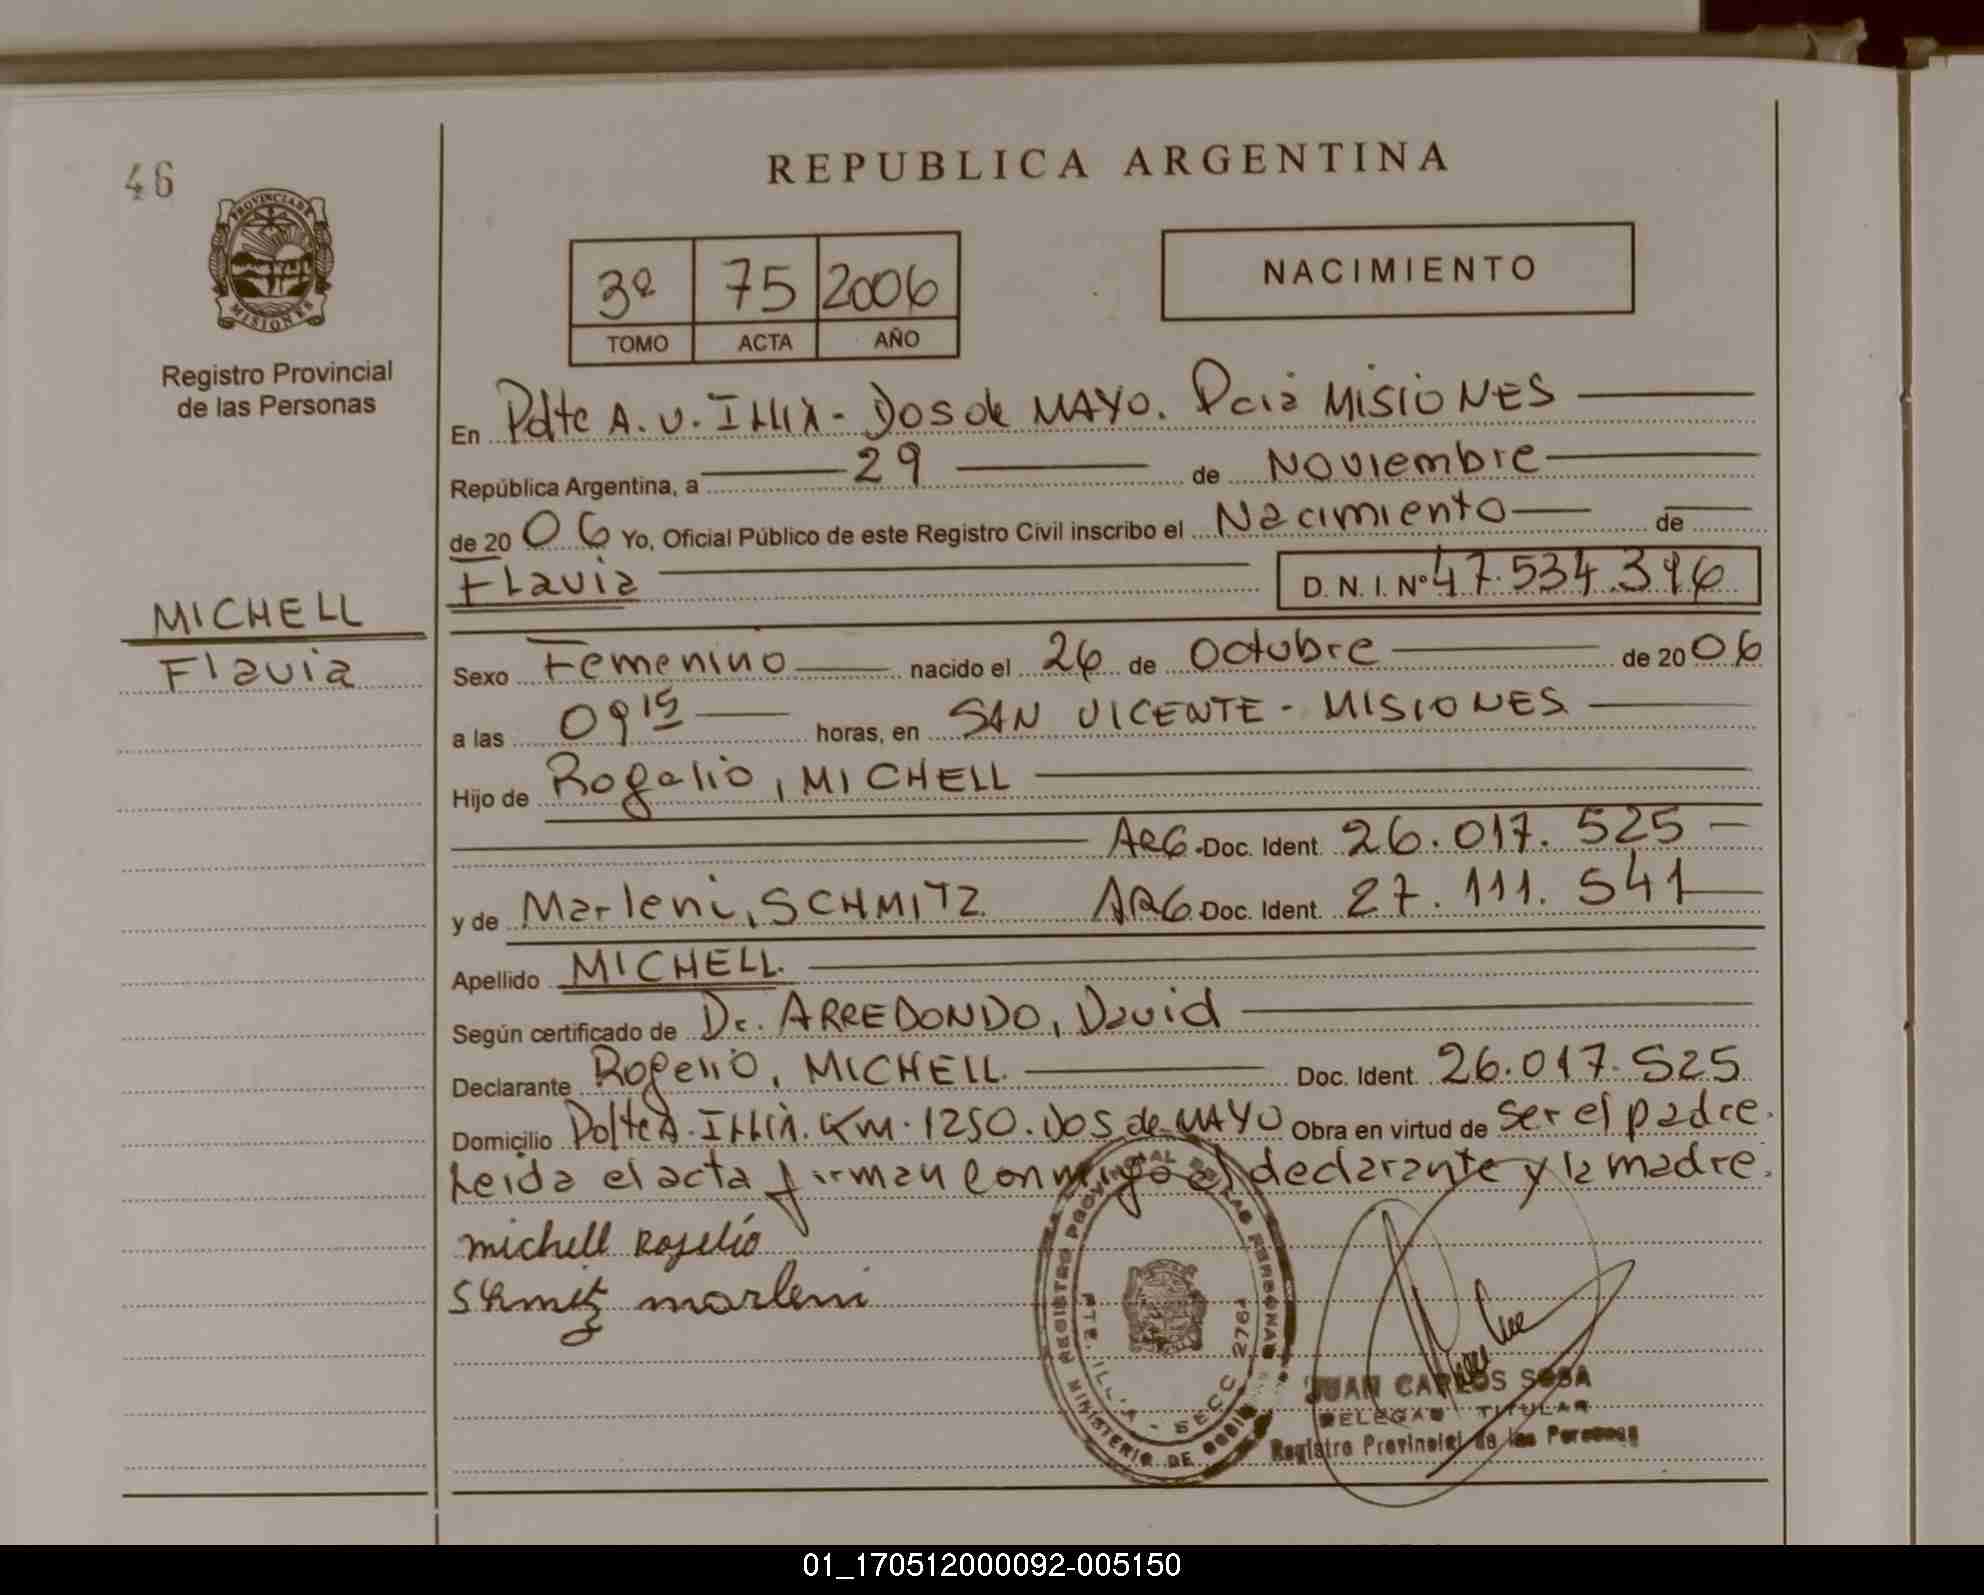 46
REPUBLICA ARGENTINA
PROVINCIA DE
MISIONES
Registro Provincial
de las Personas
3º 75 2006
TOMO ACTA AÑO
NACIMIENTO
En Pdte A. U. ILLIA - DOS de MAYO. Pcia MISIONES
República Argentina, a 29 de Noviembre
de 2006 Yo, Oficial Público de este Registro Civil inscribo el Nacimiento de
Flavia D. N. I. Nº 47.534.396
MICHELL
Flavia
Sexo Femenino nacido el 26 de Octubre de 2006
a las 09 15 horas, en SAN VICENTE - MISIONES
Hijo de Rogelio, MICHELL
ARG. Doc. Ident. 26.017.525
y de Marleni, SCHMITZ ARG. Doc. Ident. 27.111.541
Apellido MICHELL
Según certificado de Dr. ARREDONDO, David
Declarante Rogelio, MICHELL Doc. Ident. 26.017.525
Domicilio Pdte A. ILLIA. Km. 1250. DOS de MAYO Obra en virtud de ser el padre.
Leida el acta firman conmigo el declarante y la madre.
michell Rogelio
marleni
REGISTRO PROVINCIAL DE LAS PERSONAS
PTE. ILLIA - SECC 2761
MINISTERIO DE
JUAN CARLOS SOSA
DELEGADO TITULAR
Registro Provincial de las Personas
01_170512000092-005150